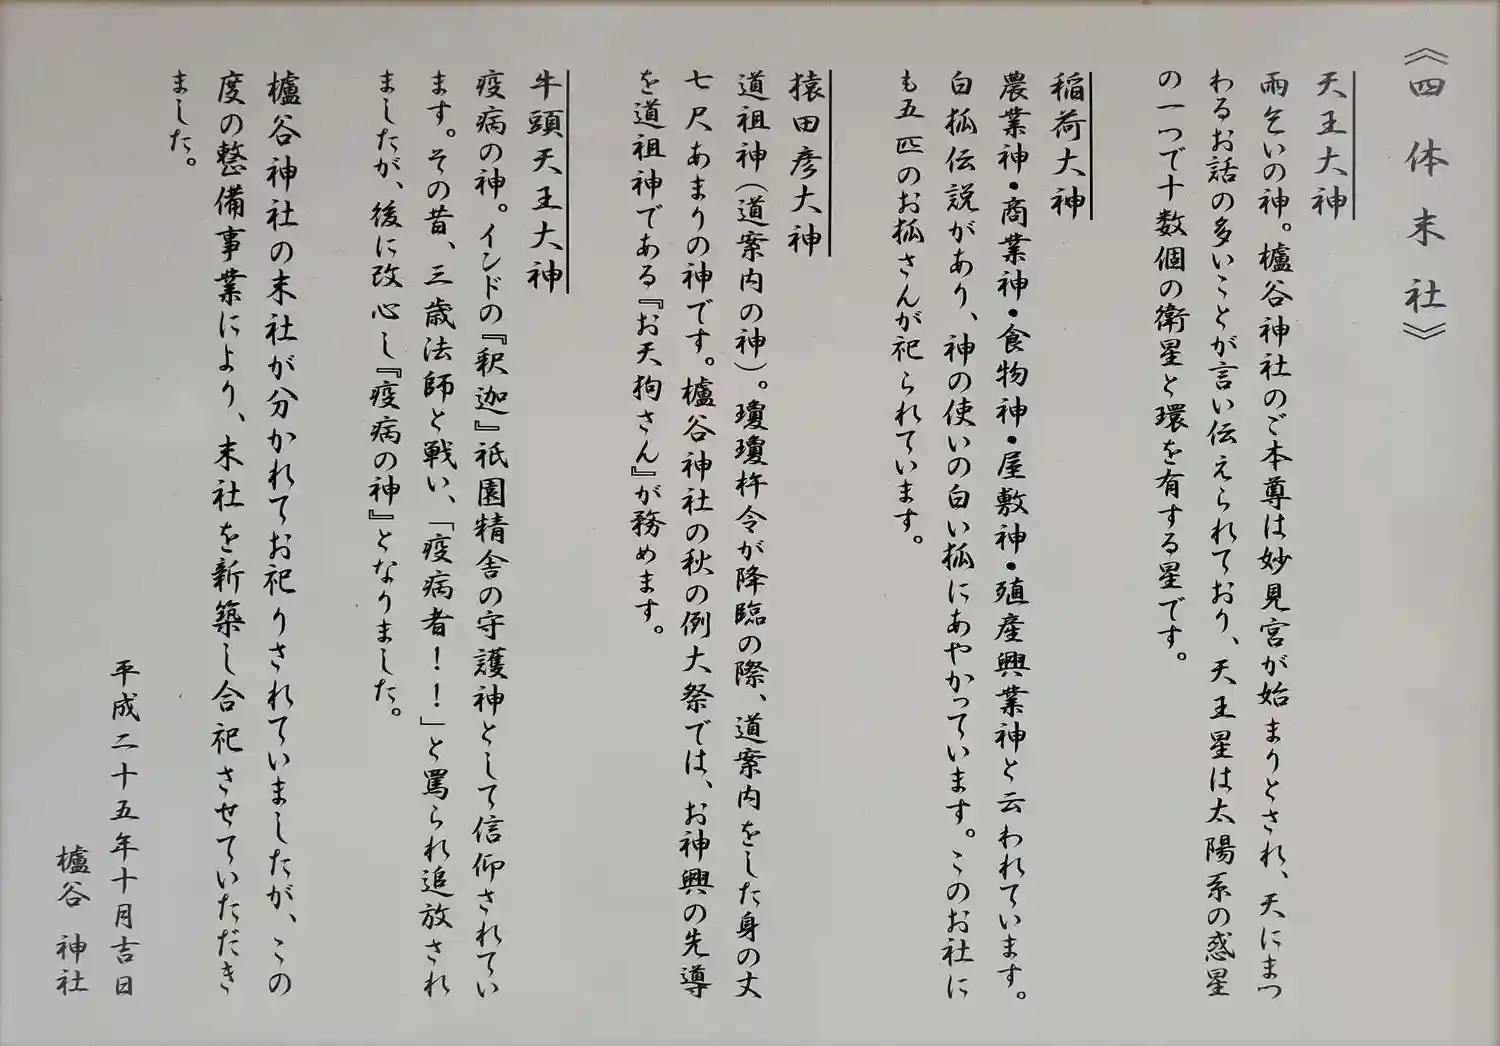 《四体末社》
天王大神
雨乞いの神。櫨谷神社のご本尊は妙見宮が始まりとされ、天にまつ
わるお話の多いことが言い伝えられており、天王星は太陽系の惑星
の一つで十数個の衛星と環を有する星です。
稲荷大神
農業神・商業神・食物神・屋敷神・殖産興業神と云われています。
白狐伝説があり、神の使いの白い狐にあやかっています。このお社に
も五匹のお狐さんが祀られています。
猿田彦大神
道祖神(道案内の神)。瓊瓊杵令が降臨の際、道案内をした身の丈
七尺あまりの神です。櫨谷神社の秋の例大祭では、お神興の先導
を道祖神である『お天拘さん』が務めます。
牛頭天王大神
疫病の神。インドの『釈迦』祇園精舎の守護神として信仰されてい
ます。その昔、三歳法師と戦い、「疫病者!!」と罵られ追放され
ましたが、後に改心し『疫病の神』となりました。
櫨谷神社の末社が分かれてお祀りされていましたが、この
度の整備事業により、末社を新築し合祀させていただき
ました。
平成二十五年十月吉日
櫨谷 神社